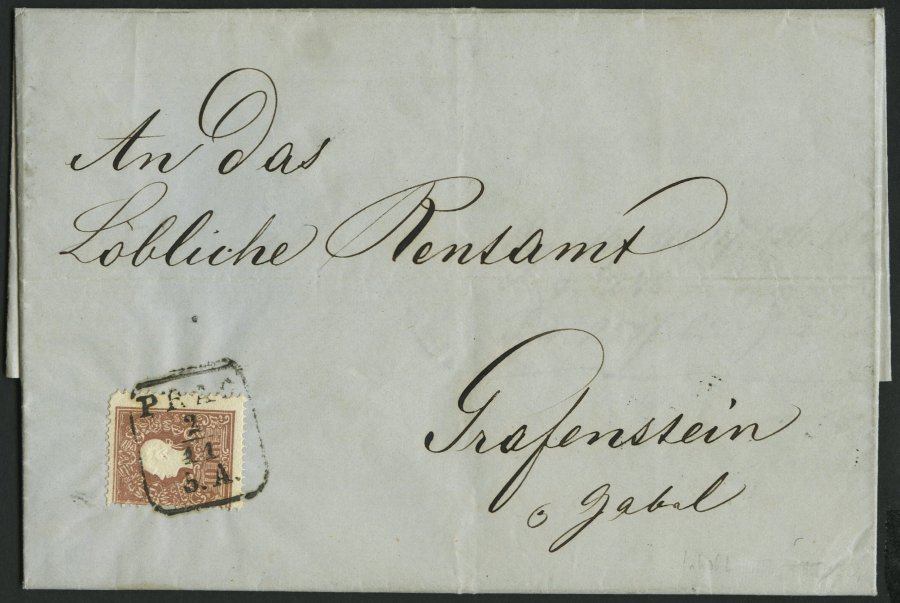 An das
Löbliche Rentamt
Grafenstein
Gabel
PRAG
2
11
5.A.